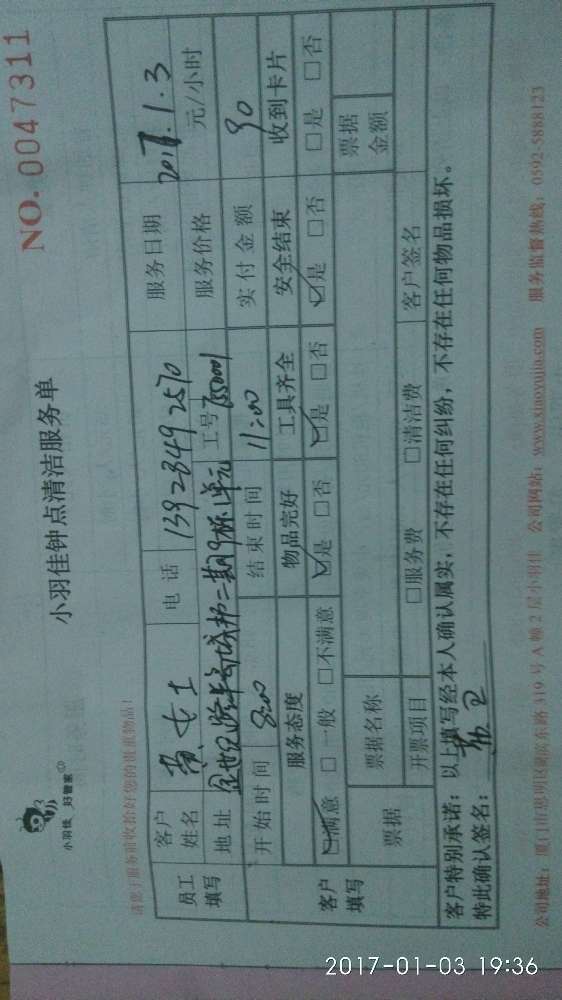 NO. 0047311
小羽佳钟点清洁服务单
小羽佳 好管家
请您于服务前收拾好您的贵重物品!
员工填写
客户姓名 黄女士 电话 13928492570 服务日期 2017.1.3
地址 二期9栋1单元 工号 服务价格 元/小时
开始时间 8:00 结束时间 11:00 实付金额 90
客户填写
服务态度 物品完好 工具齐全 安全结束 收到卡片
☑满意 □一般 □不满意 ☑是 □否 ☑是 □否 ☑是 □否 □是 □否
票据 票据名称 票据金额
开票项目 □服务费 □清洁费 客户签名
客户特别承诺:以上填写经本人确认属实,不存在任何纠纷,不存在任何物品损坏。
特此确认签名:
公司地址:厦门市思明区湖滨东路319号A幢2层小羽佳 公司网站:www.xiaoyujia.com 服务监督热线:0592-5888123
2017-01-03 19:36